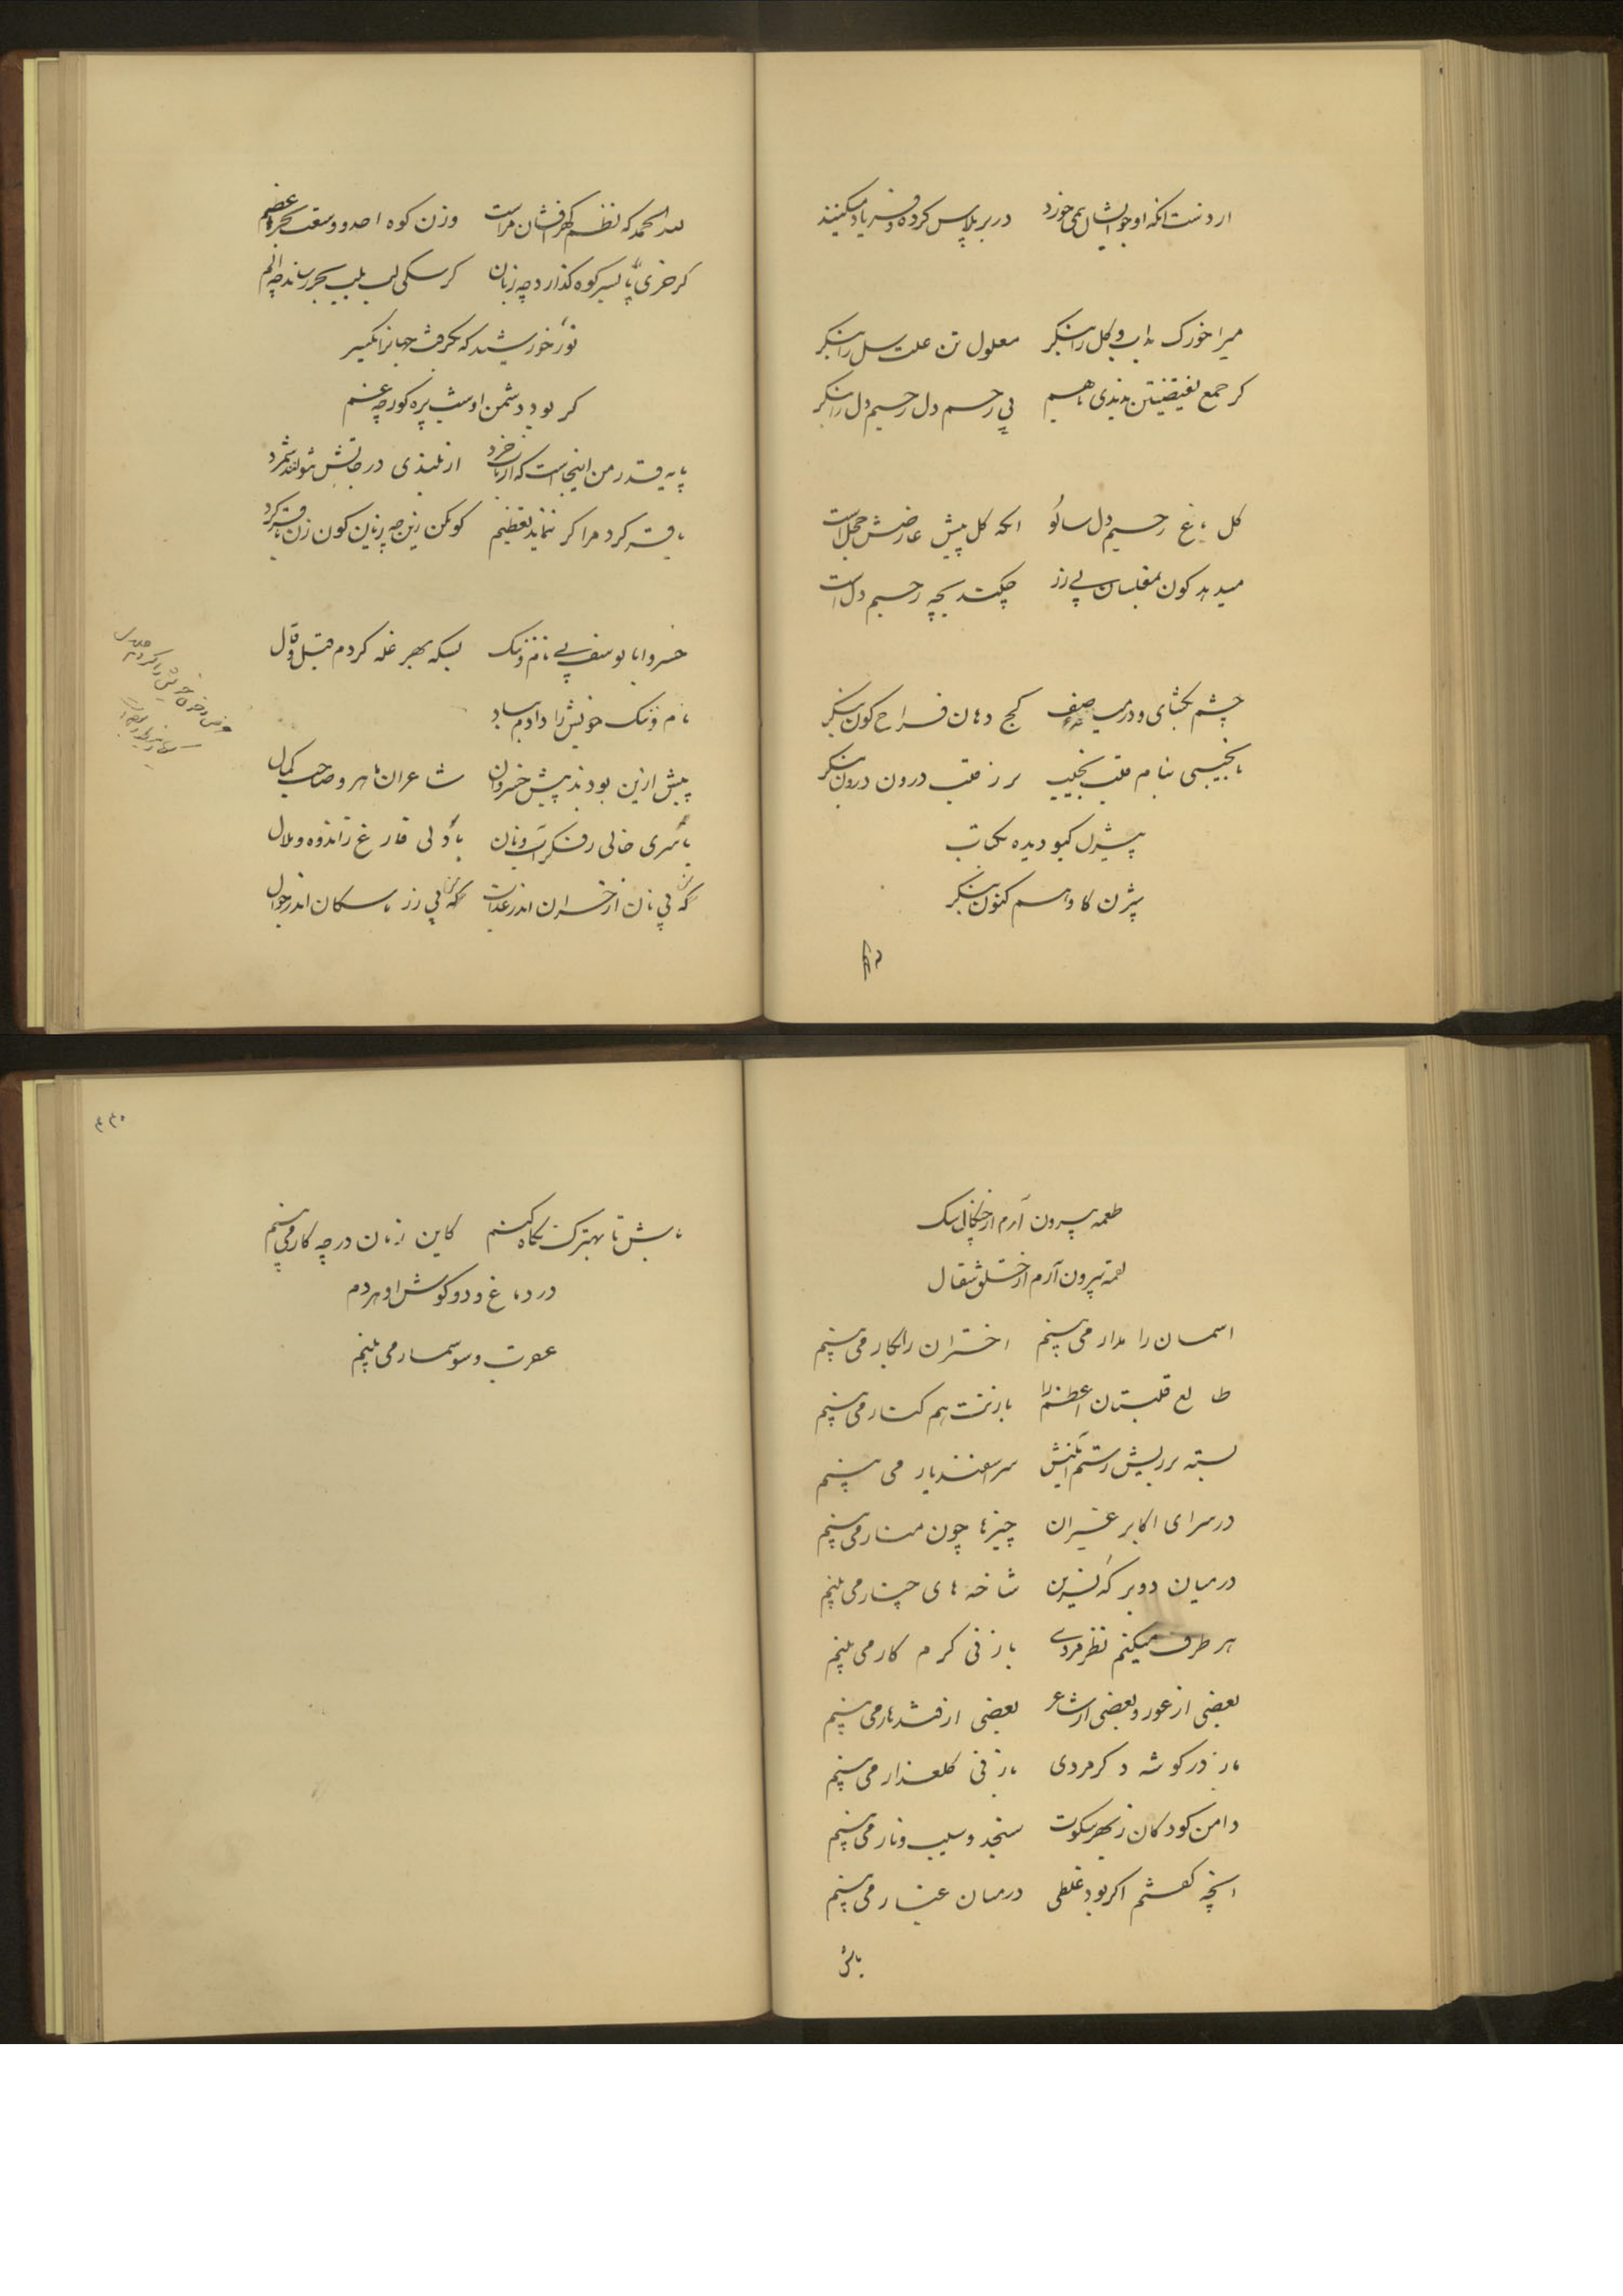 دربر پلاس کرده و فریاد میکنند
میرا خورک بداب و کل را بنگر معلول تن علت سل را بنگر
کر جمع نقیضین ندیدی باهم بی رحم دل رحیم دل را بنگر
کل باغ رحیم دل سانو انکه کل پیش عارضش خجل است
میدهد کون بمفلسان بی زر چکند بچه رحیم دل است
چشم بکشای و درمیب صفه کج دهان فراح کون بنکر
نانجیبی بنام قلب نجیب برز قلب درون درون بنکر
بیژن کاو اسم کنون بنکر
لله الحمد که نظم کهرافشان مراست وزن کوه احد و وسعت بحره عظیم
کر خری پا بسر کوه کذارد چه زیان کر سکی لب بلب بحر رساند چه الم
نور خورشید که بکرفت جهانرا یکسر
کر بود دشمن او شب پره کور چه غم
پایه قدر من اینجاست که ارباب خرد از بلندی درجاتش نتوانند شمرد
باقر کرد مرا کر ننماید تعظیم کو مکن زین چه زیان کون زن باقر کرد
خسروا با یوسف بی نام و ننک بسکه بهر غله کردم قیل و قال
نام و ننک خویش را دادم بباد
پیش ازین بودند پیش خسروان شاعران ماهر و صاحب کمال
با سری خالی ز فکر آب و نان با دلی فارغ ز اندوه و ملال
که بی نان از خران اندر عذاب که بی زر با سکان اندر جوال
طعمه بیرون آرم از چنکال سک
لقمه بیرون آرم از حلق شقال
اسمان را مدار می بینم اختران را بکار می بینم
طالع قلبتان اعظم را بازنت هم کنار می بینم
بسته بر ریش رستم الکنش سر اسفندیار می بینم
در سرای اکابر غیران چیزها چون منار می بینم
درمیان دو برکه نسرین شاخه های چنار می بینم
هر طرف میکنم نظر مردی با زنی کرم کار می بینم
بعضی از غور و بعضی از شاعر بعضی از قندهار می بینم
باز در کوشه دکر مردی با زنی کلعذار می بینم
دامن کودکان ز بهر سکوت سنجد و سیب و نار می بینم
انچه کفتم اکر بود غلطی درمیان غبار می بینم
باش
۴۳۰
باش تا بهترک نکاه کنم کاین زنان در چه کار می بینم
در دماغ و دو کوش او هردم
عقرب و سوسمار می بینم